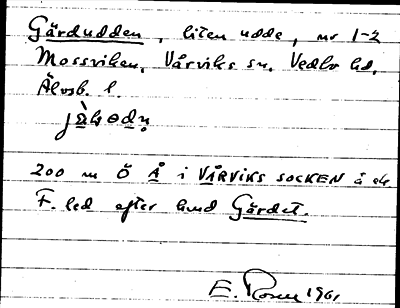 Gärdudden, liten udde, nr 1-2
Mossviken, Vårviks sn, Vedbo hd,
Älvsb. l.
200 m Ö Å i VÅRVIKS SOCKEN å ek
F. led efter hmd Gärdet.
E. Rosen 1961